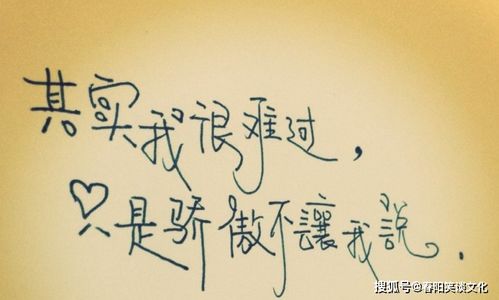 其实我很难过，
只是骄傲不讓我説.
搜狐号@春阳笑谈文化